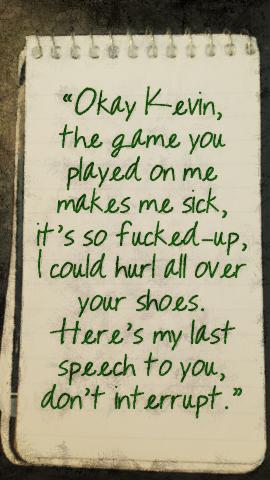 “Okay Kevin,
the game you
played on me
makes me sick,
it's so fucked-up,
I could hurl all over
your shoes.
Here's my last
speech to you,
don't interrupt.”